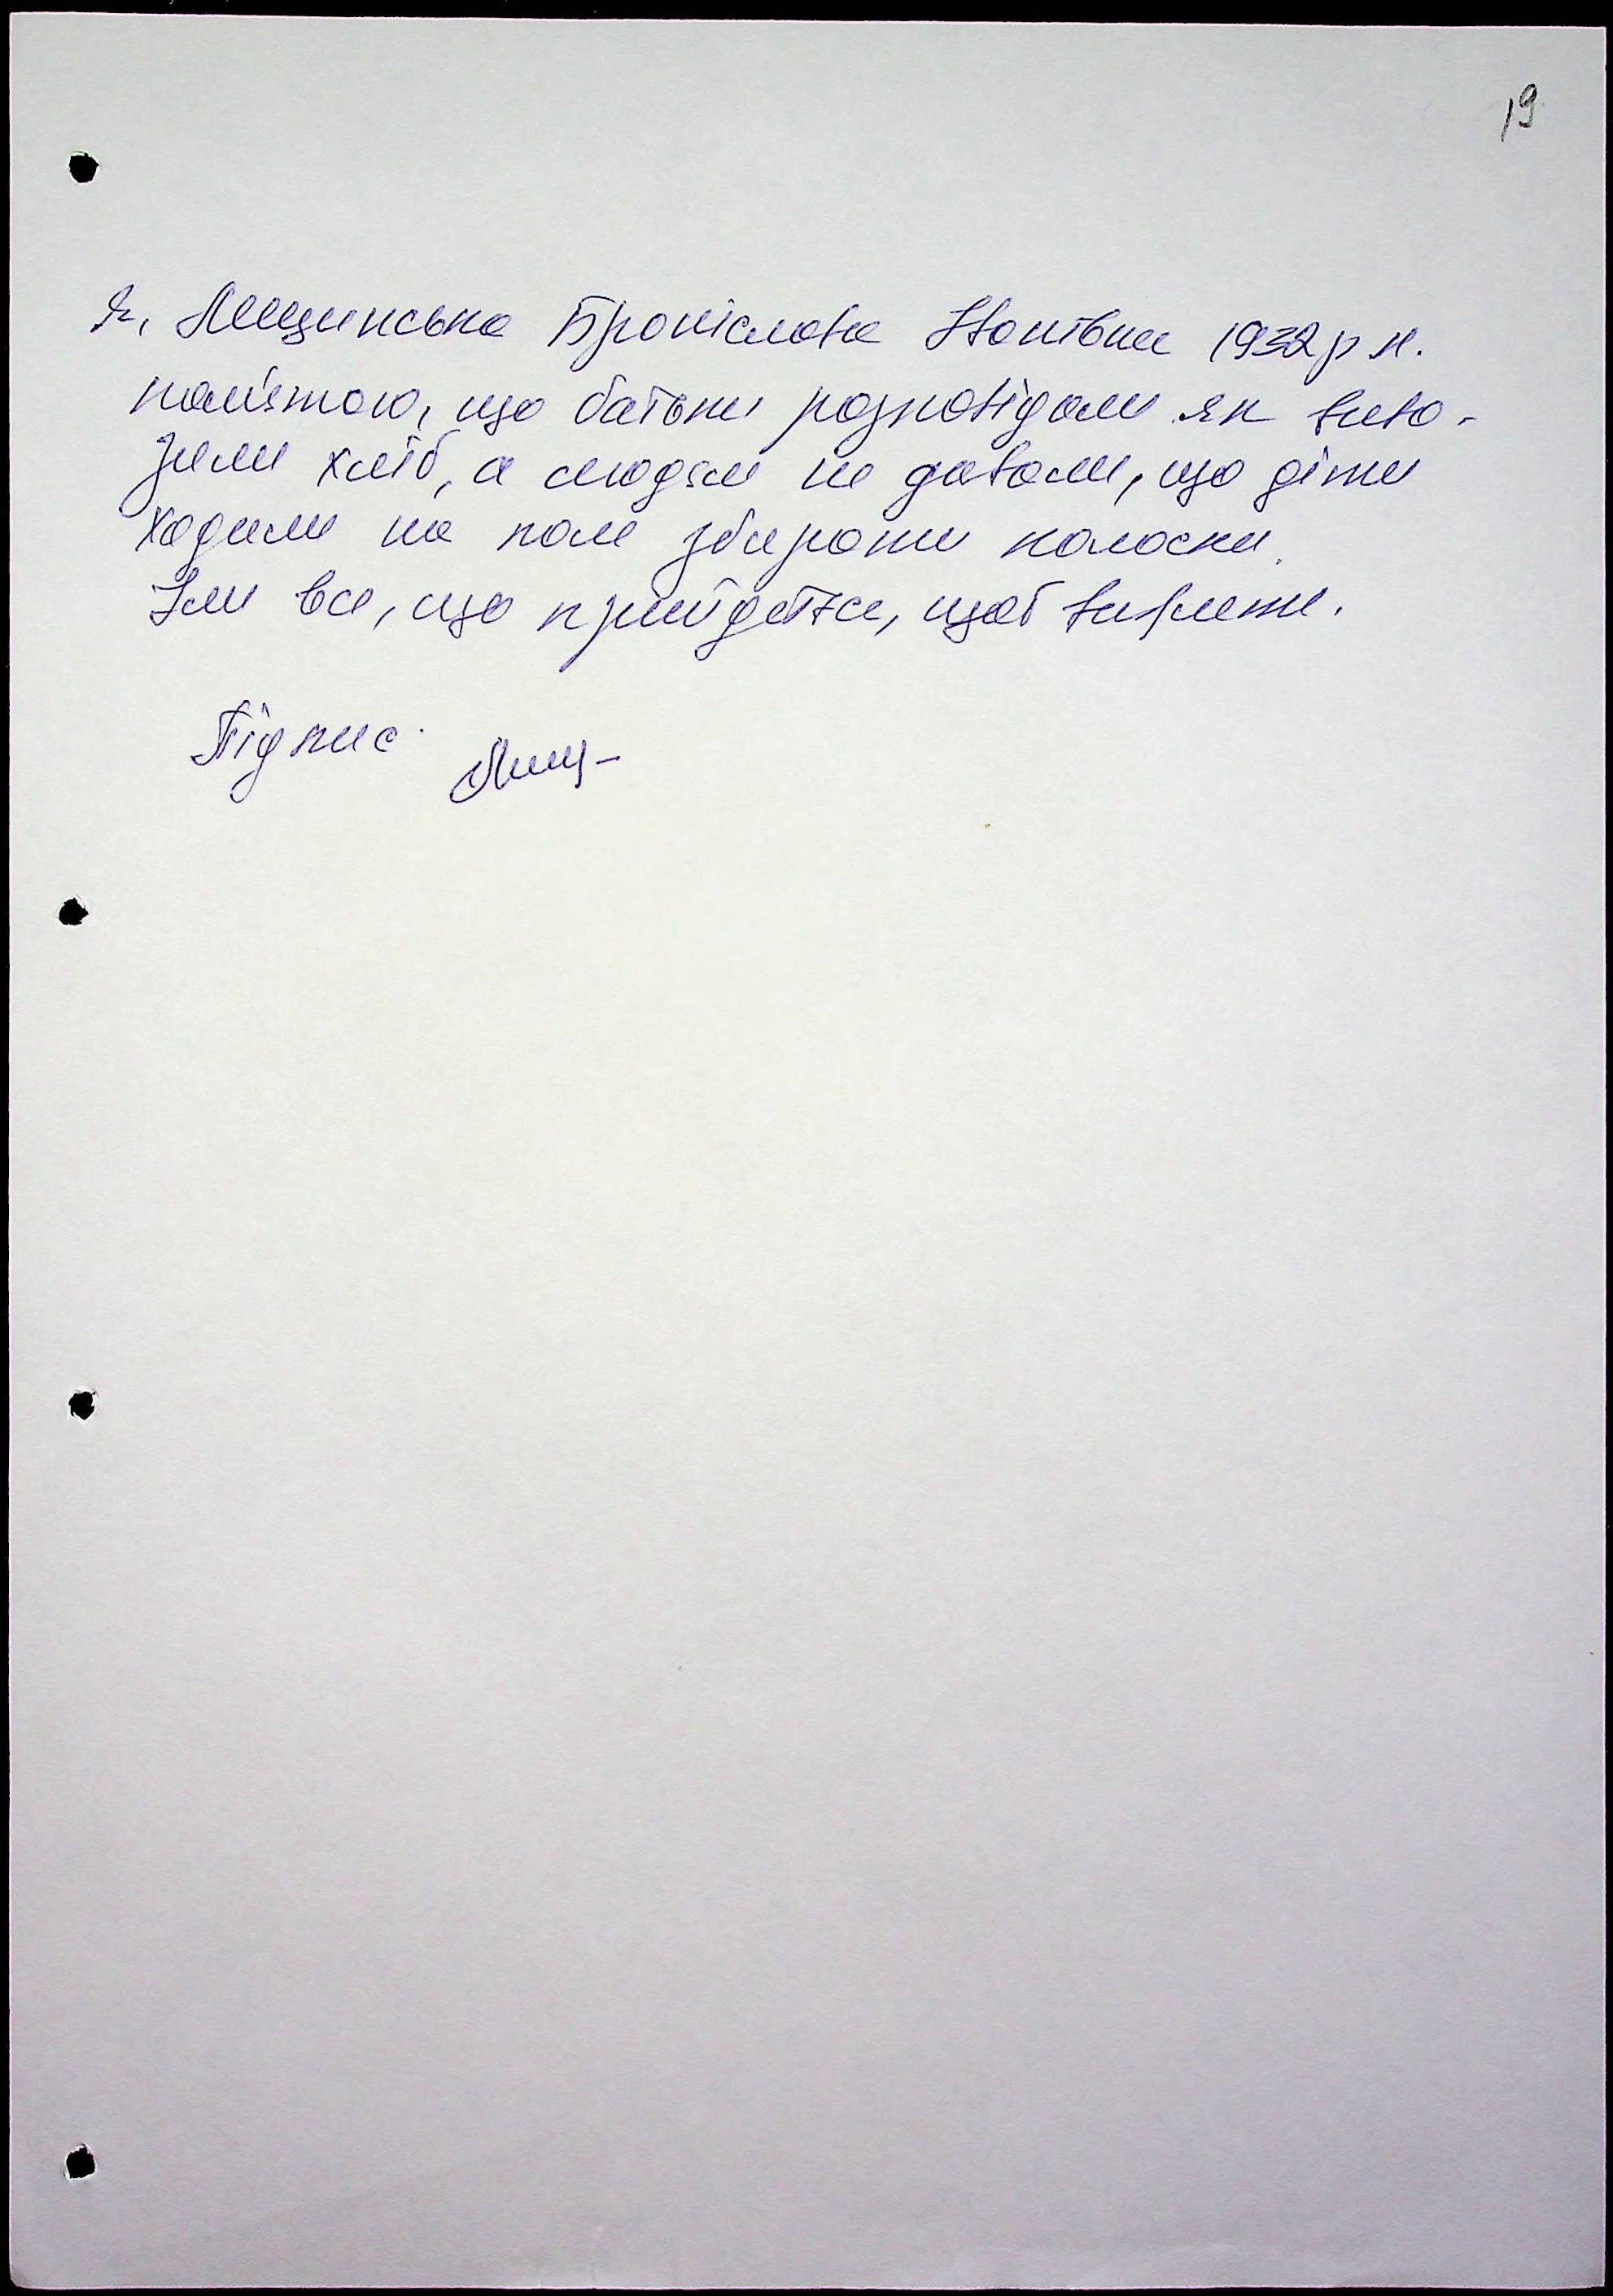 19
Я, Лещинська Броніслава Йонівна 1932 р н.
пам'ятаю, що батьки розповідали як виво-
зили хліб, а людям не давали, що діти
ходили на поле збирати колоски.
Їли все, що прийдеться, щоб вижити.
Підпис Лещ-